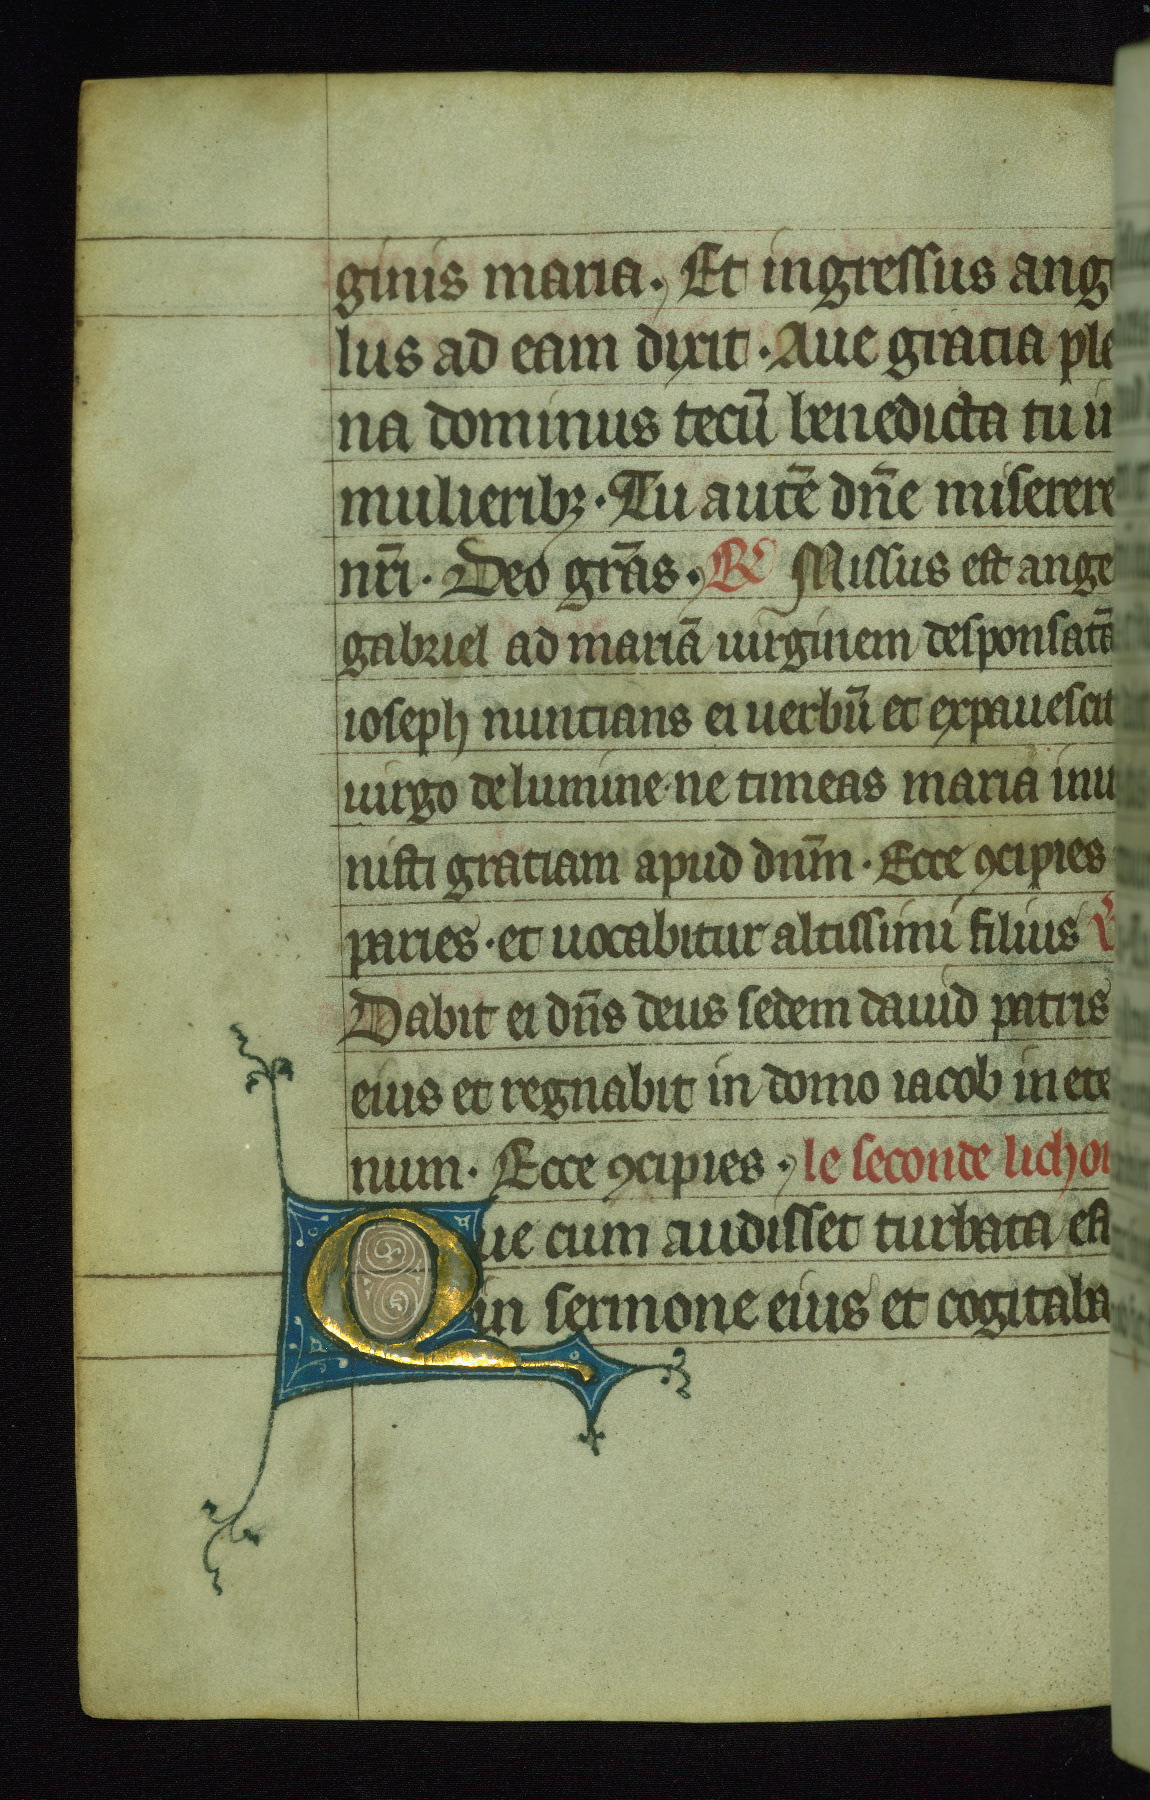 ginis maria. Et ingressus ang
lus ad eam dixit. Aue gratia ple
na dominus tecū benedicta tu i
mulieribꝫ. Tu autē dn̄e miserere
nr̄i. Deo grās. ℟ Missus est ange
gabriel ad mariā uirginem desponsatā
ioseph nuntians ei uerbū et expauescit
uirgo de lumine ne timeas maria inu
nisti gratiam apud dn̄m. Ecce ꝯcipies
paries. et uocabitur altissimi filius
Dabit ei dn̄s deus sedem dauid patris
eius et regnabit in domo iacob in ete
num. Ecce ꝯcipies. le seconde lichon
Que cum audisset turbata est
in sermone eius et cogitaba